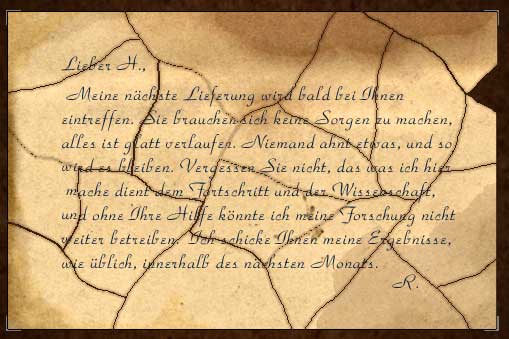 Lieber H.,
Meine nächste Lieferung wird bald bei Ihnen
eintreffen. Sie brauchen sich keine Sorgen zu machen,
alles ist glatt verlaufen. Niemand ahnt etwas, und so
wird es bleiben. Vergessen Sie nicht, das was ich hier
mache dient dem Fortschritt und der Wissenschaft,
und ohne Ihre Hilfe könnte ich meine Forschung nicht
weiter betreiben. Ich schicke Ihnen meine Ergebnisse,
wie üblich, innerhalb des nächsten Monats.
R.